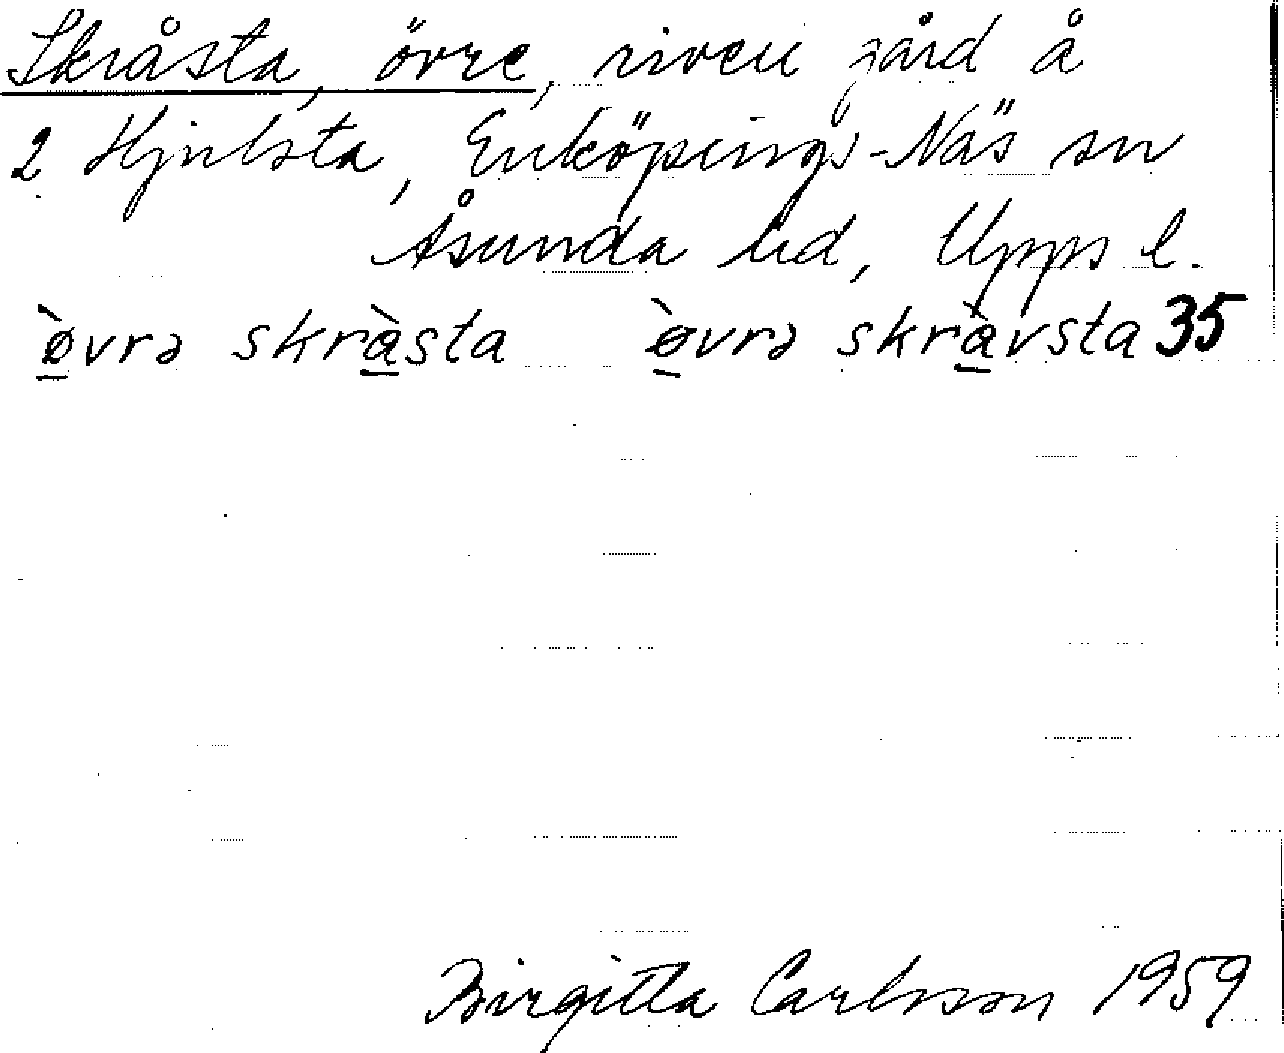 Skråsta, övre, riven gård å
2 Hjulsta, Enköpings-Näs sn
Åsunda hd, Upps l.
ø̀vrə skràsta ø̀vrə skràvsta 35
Birgitta Carlsson 1959